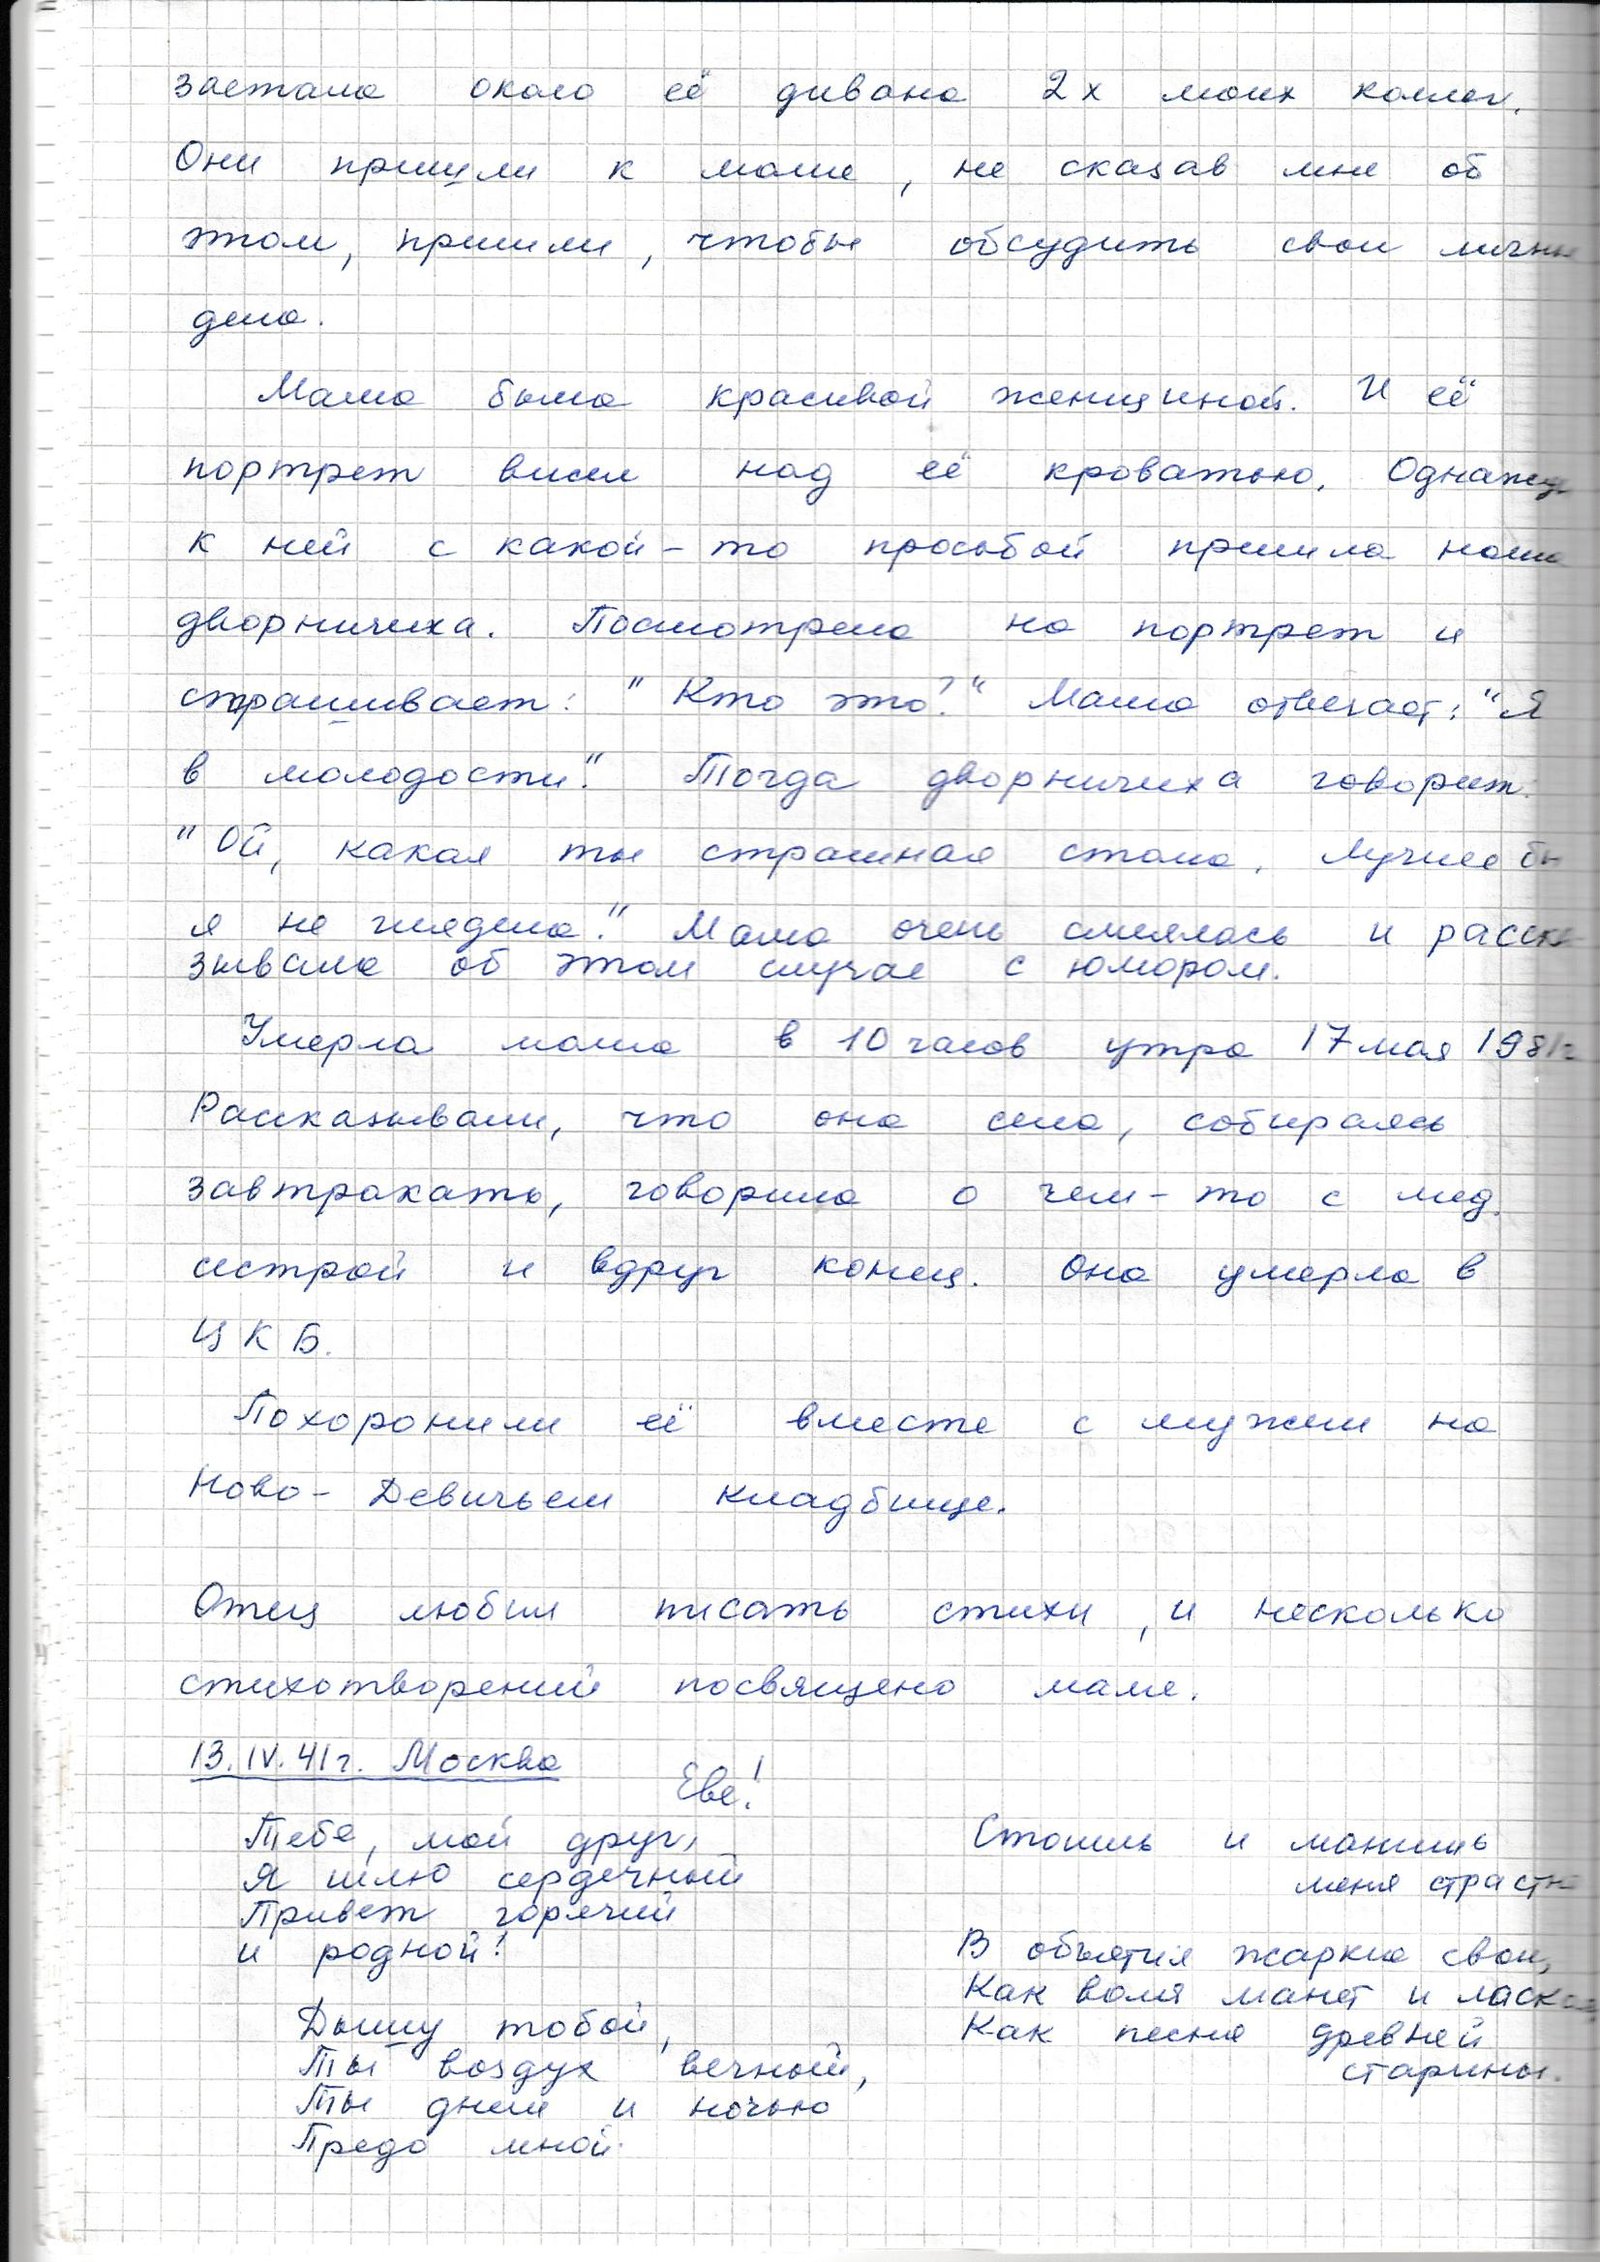 застала около её дивана 2х моих коллег.
Они пришли к маме, не сказав мне об
этом, пришли, чтобы обсудить свои личны
дела.
Мама была красивой женщиной. И её
портрет висел над её кроватью. Однажды
к ней с какой-то просьбой пришла наша
дворничиха. Посмотрела на портрет и
спрашивает: "Кто это?" Мама отвечает: "Я
в молодости." Тогда дворничиха говорит:
"Ой, какая ты страшная стала. Лучше бы
я не глядела." Мама очень смеялась и расска-
зывала об этом случае с юмором.
Умерла мама в 10 часов утра 17 мая 1981г
Рассказывали, что она села, собираясь
завтракать, говорила о чем-то с мед.
сестрой и вдруг конец. Она умерла в
ЦКБ.
Похоронили её вместе с мужем на
Ново-Девичьем кладбище.
Отец любил писать стихи, и несколько
стихотворений посвящено маме.
13.IV.41г. Москва
Еве!
Тебе, мой друг,
Я шлю сердечный
Привет горячий
и родной!
Дышу тобой,
Ты воздух вечный,
Ты днем и ночью
Предо мной.
Стоишь и манишь
меня страстно
В объятия жаркие свои,
Как воля манит и ласкает,
Как песня древней
старины.